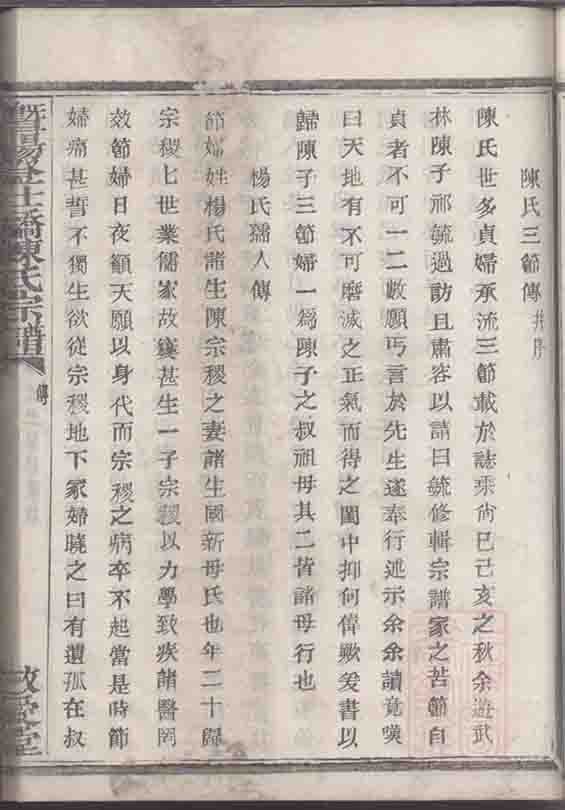 陳氏三節傳并序
陳氏世多貞婦承流三節載於誌乘尚已己亥之秋余遊武
林陳子祁毓過訪且肅容以請曰毓修輯宗譜家之苦節自
貞者不可一二數願丐言於先生遂奉行述示余余讀竟嘆
曰天地有不可磨滅之正氣而得之閨中抑何偉歟爰書以
歸陳子三節婦一爲陳子之叔祖母其二皆諸母行也
楊氏孺人傳
節婦姓楊氏諸生陳宗稷之妻諸生國新母氏也年二十歸
宗稷七世業儒家故窶甚生一子宗稷以力學致疾諸醫罔
效節婦日夜籲天願以身代而宗稷之病卒不起當是時節
婦痛甚誓不獨生欲從宗稷地下冢婦曉之曰有遺孤在叔
暨陽 橋陳氏宗譜
傳
敬愛堂